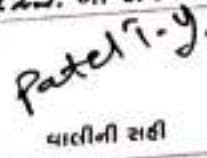 Patel T.Y.
વાલીની સહી